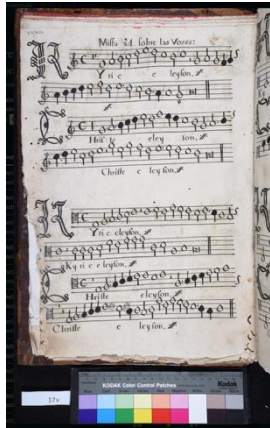 Missa â 4 sobre las Vozes:
Kyri e e leyson, ij
Christe eley son, ij
Christe e leyson, ij
Kyri e eleyson, ij
Kyri e e leyson, ij
Christe eleyson, ij
Christe e leyson, ij
KODAK Color Control Patches
Kodak
17v